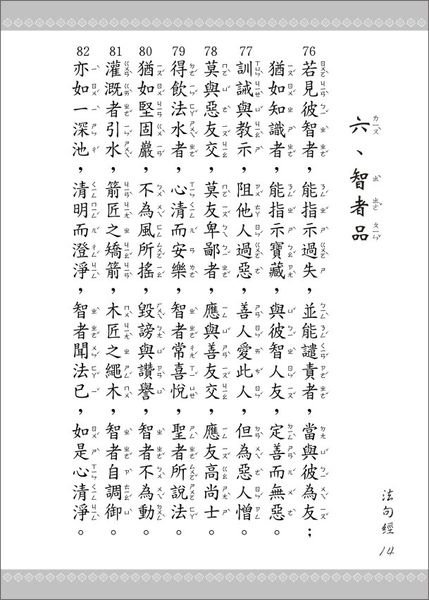 六、智者品
76 若見彼智者，能指示過失，並能譴責者，當與彼為友；
猶如知識者，能指示寶藏，與彼智人友，定善而無惡。
77 訓誡與教示，阻他人過惡，善人愛此人，但為惡人憎。
78 莫與惡友交，莫友卑鄙者，應與善友交，應友高尚士。
79 得飲法水者，心清而安樂，智者常喜悅，聖者所說法。
80 猶如堅固巖，不為風所搖，毀謗與讚譽，智者不為動。
81 灌溉者引水，箭匠之矯箭，木匠之繩木，智者自調御。
82 亦如一深池，清明而澄淨，智者聞法已，如是心清淨。
法句經 14